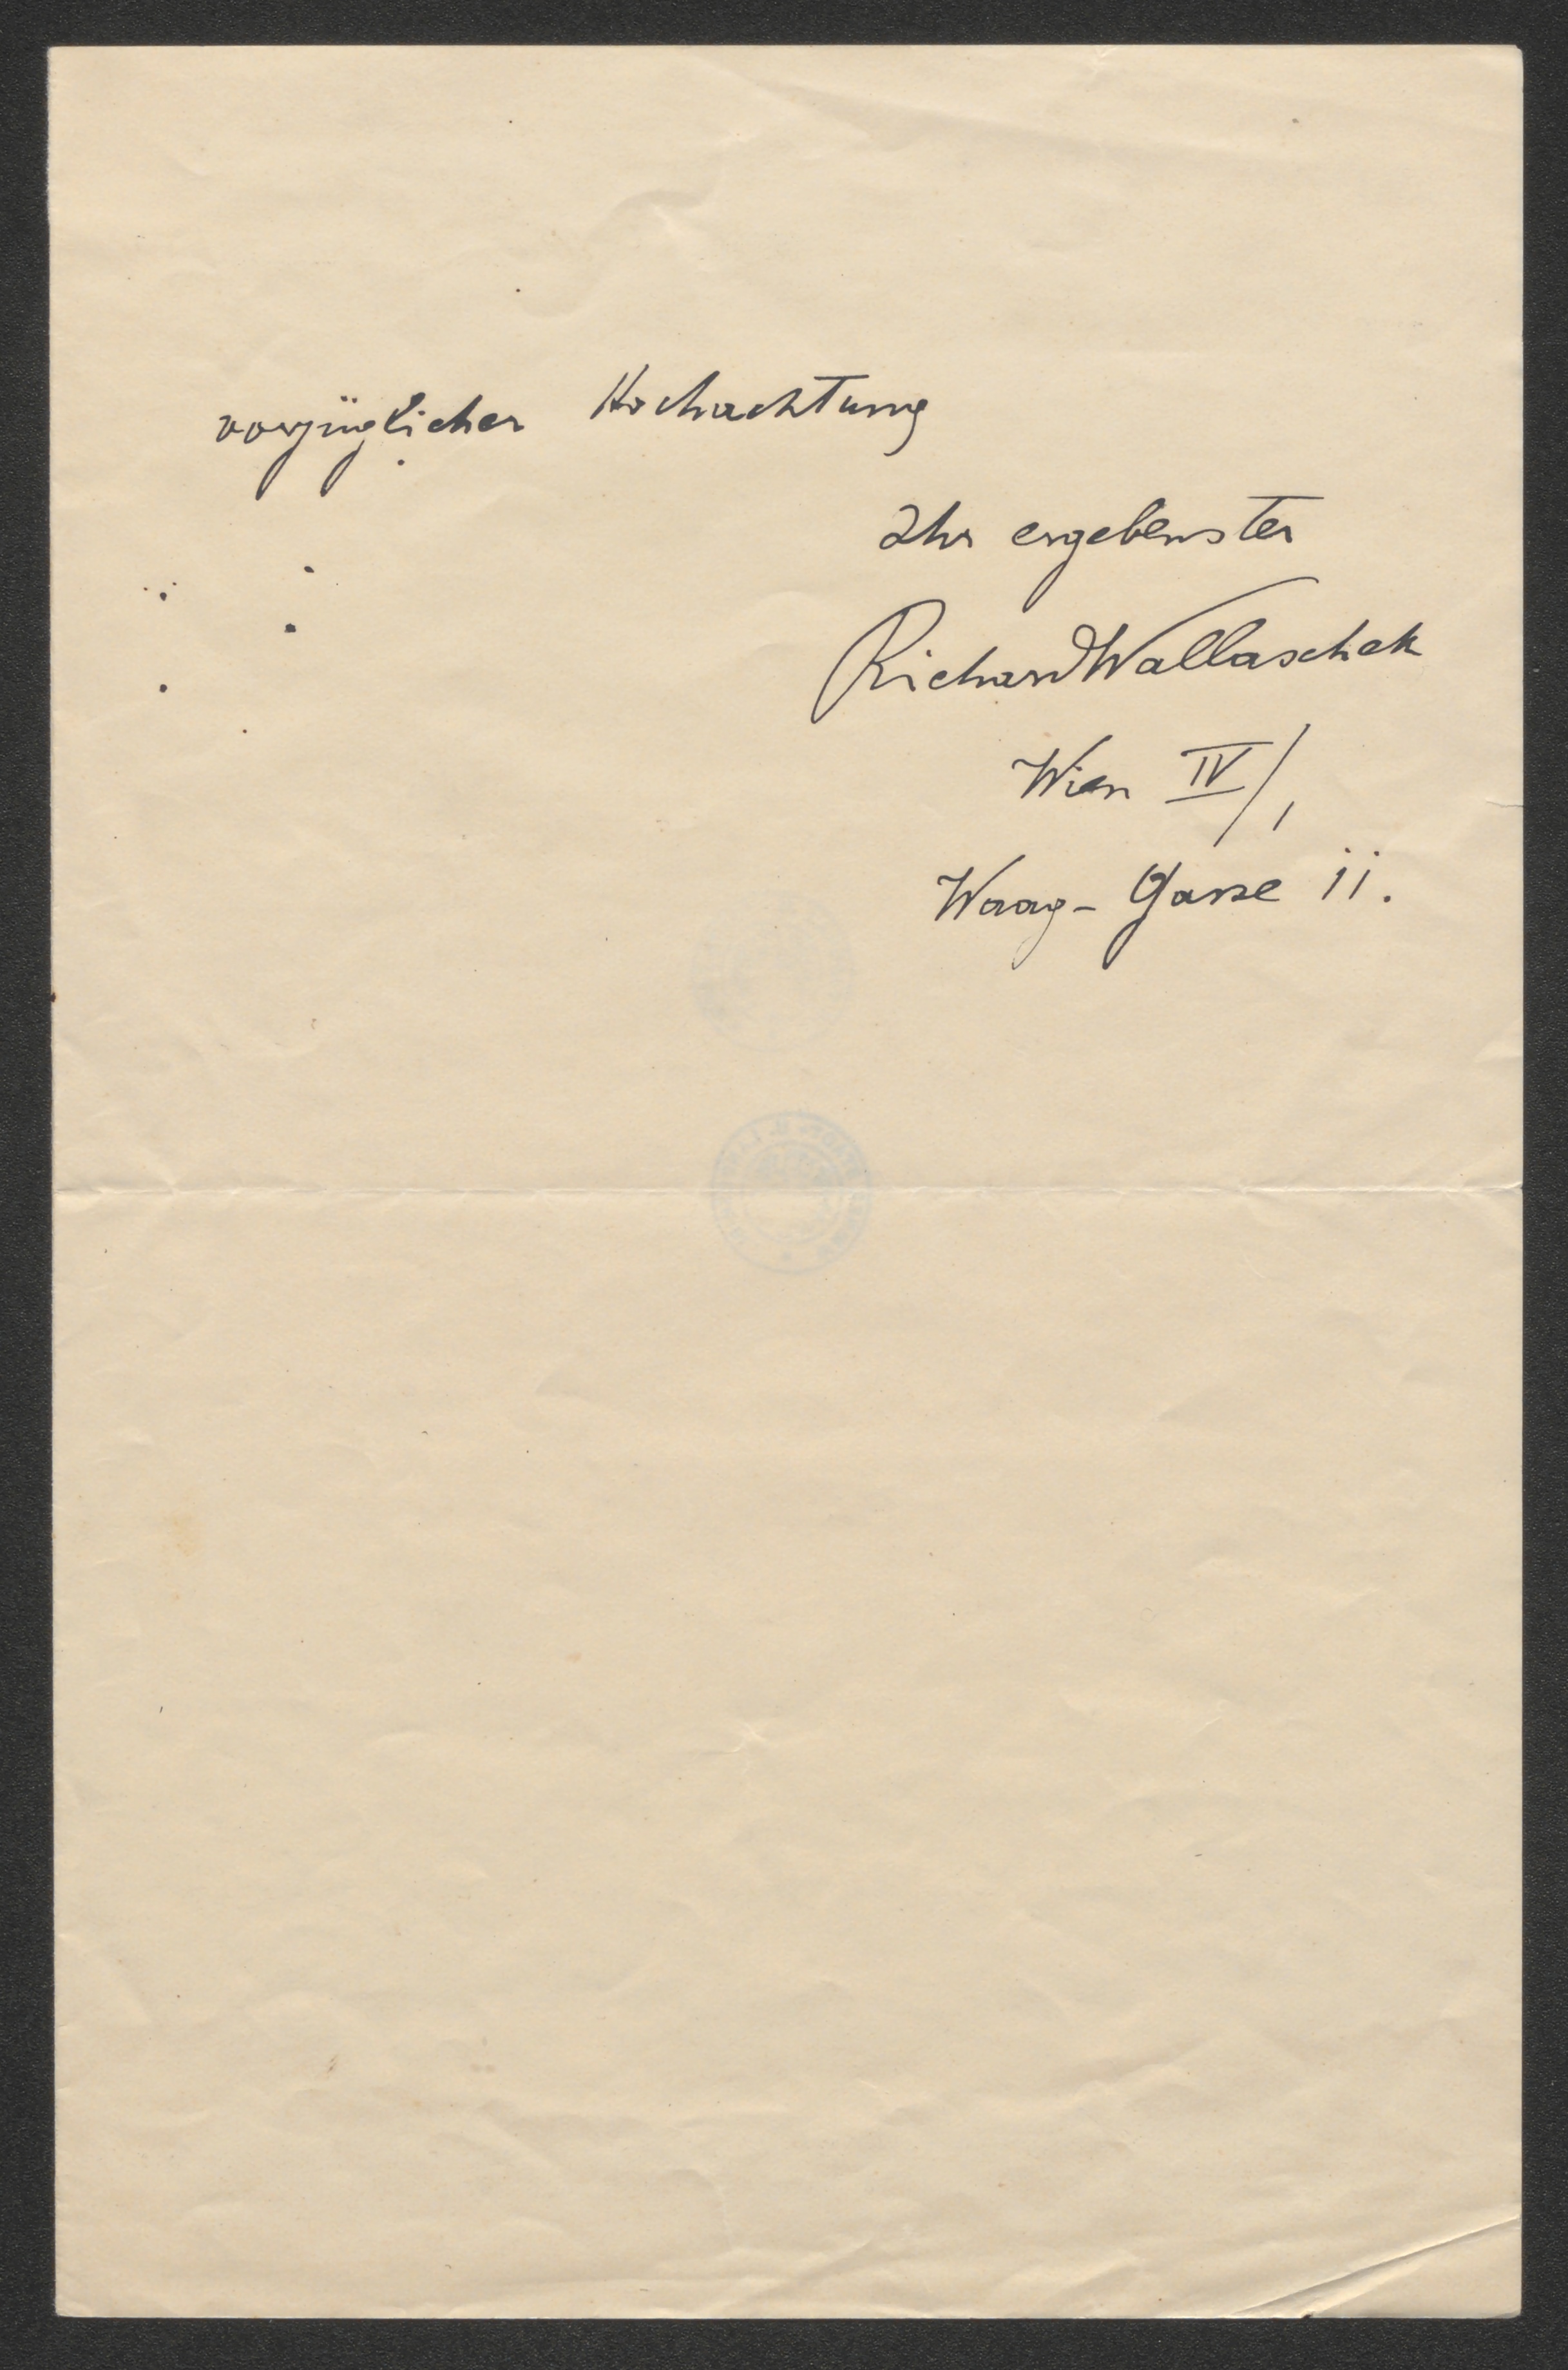 vorzüglicher Hochachtung
Ihr ergebenster
Richard Wallaschek
Wien IV/1
Waag-Gasse 11.